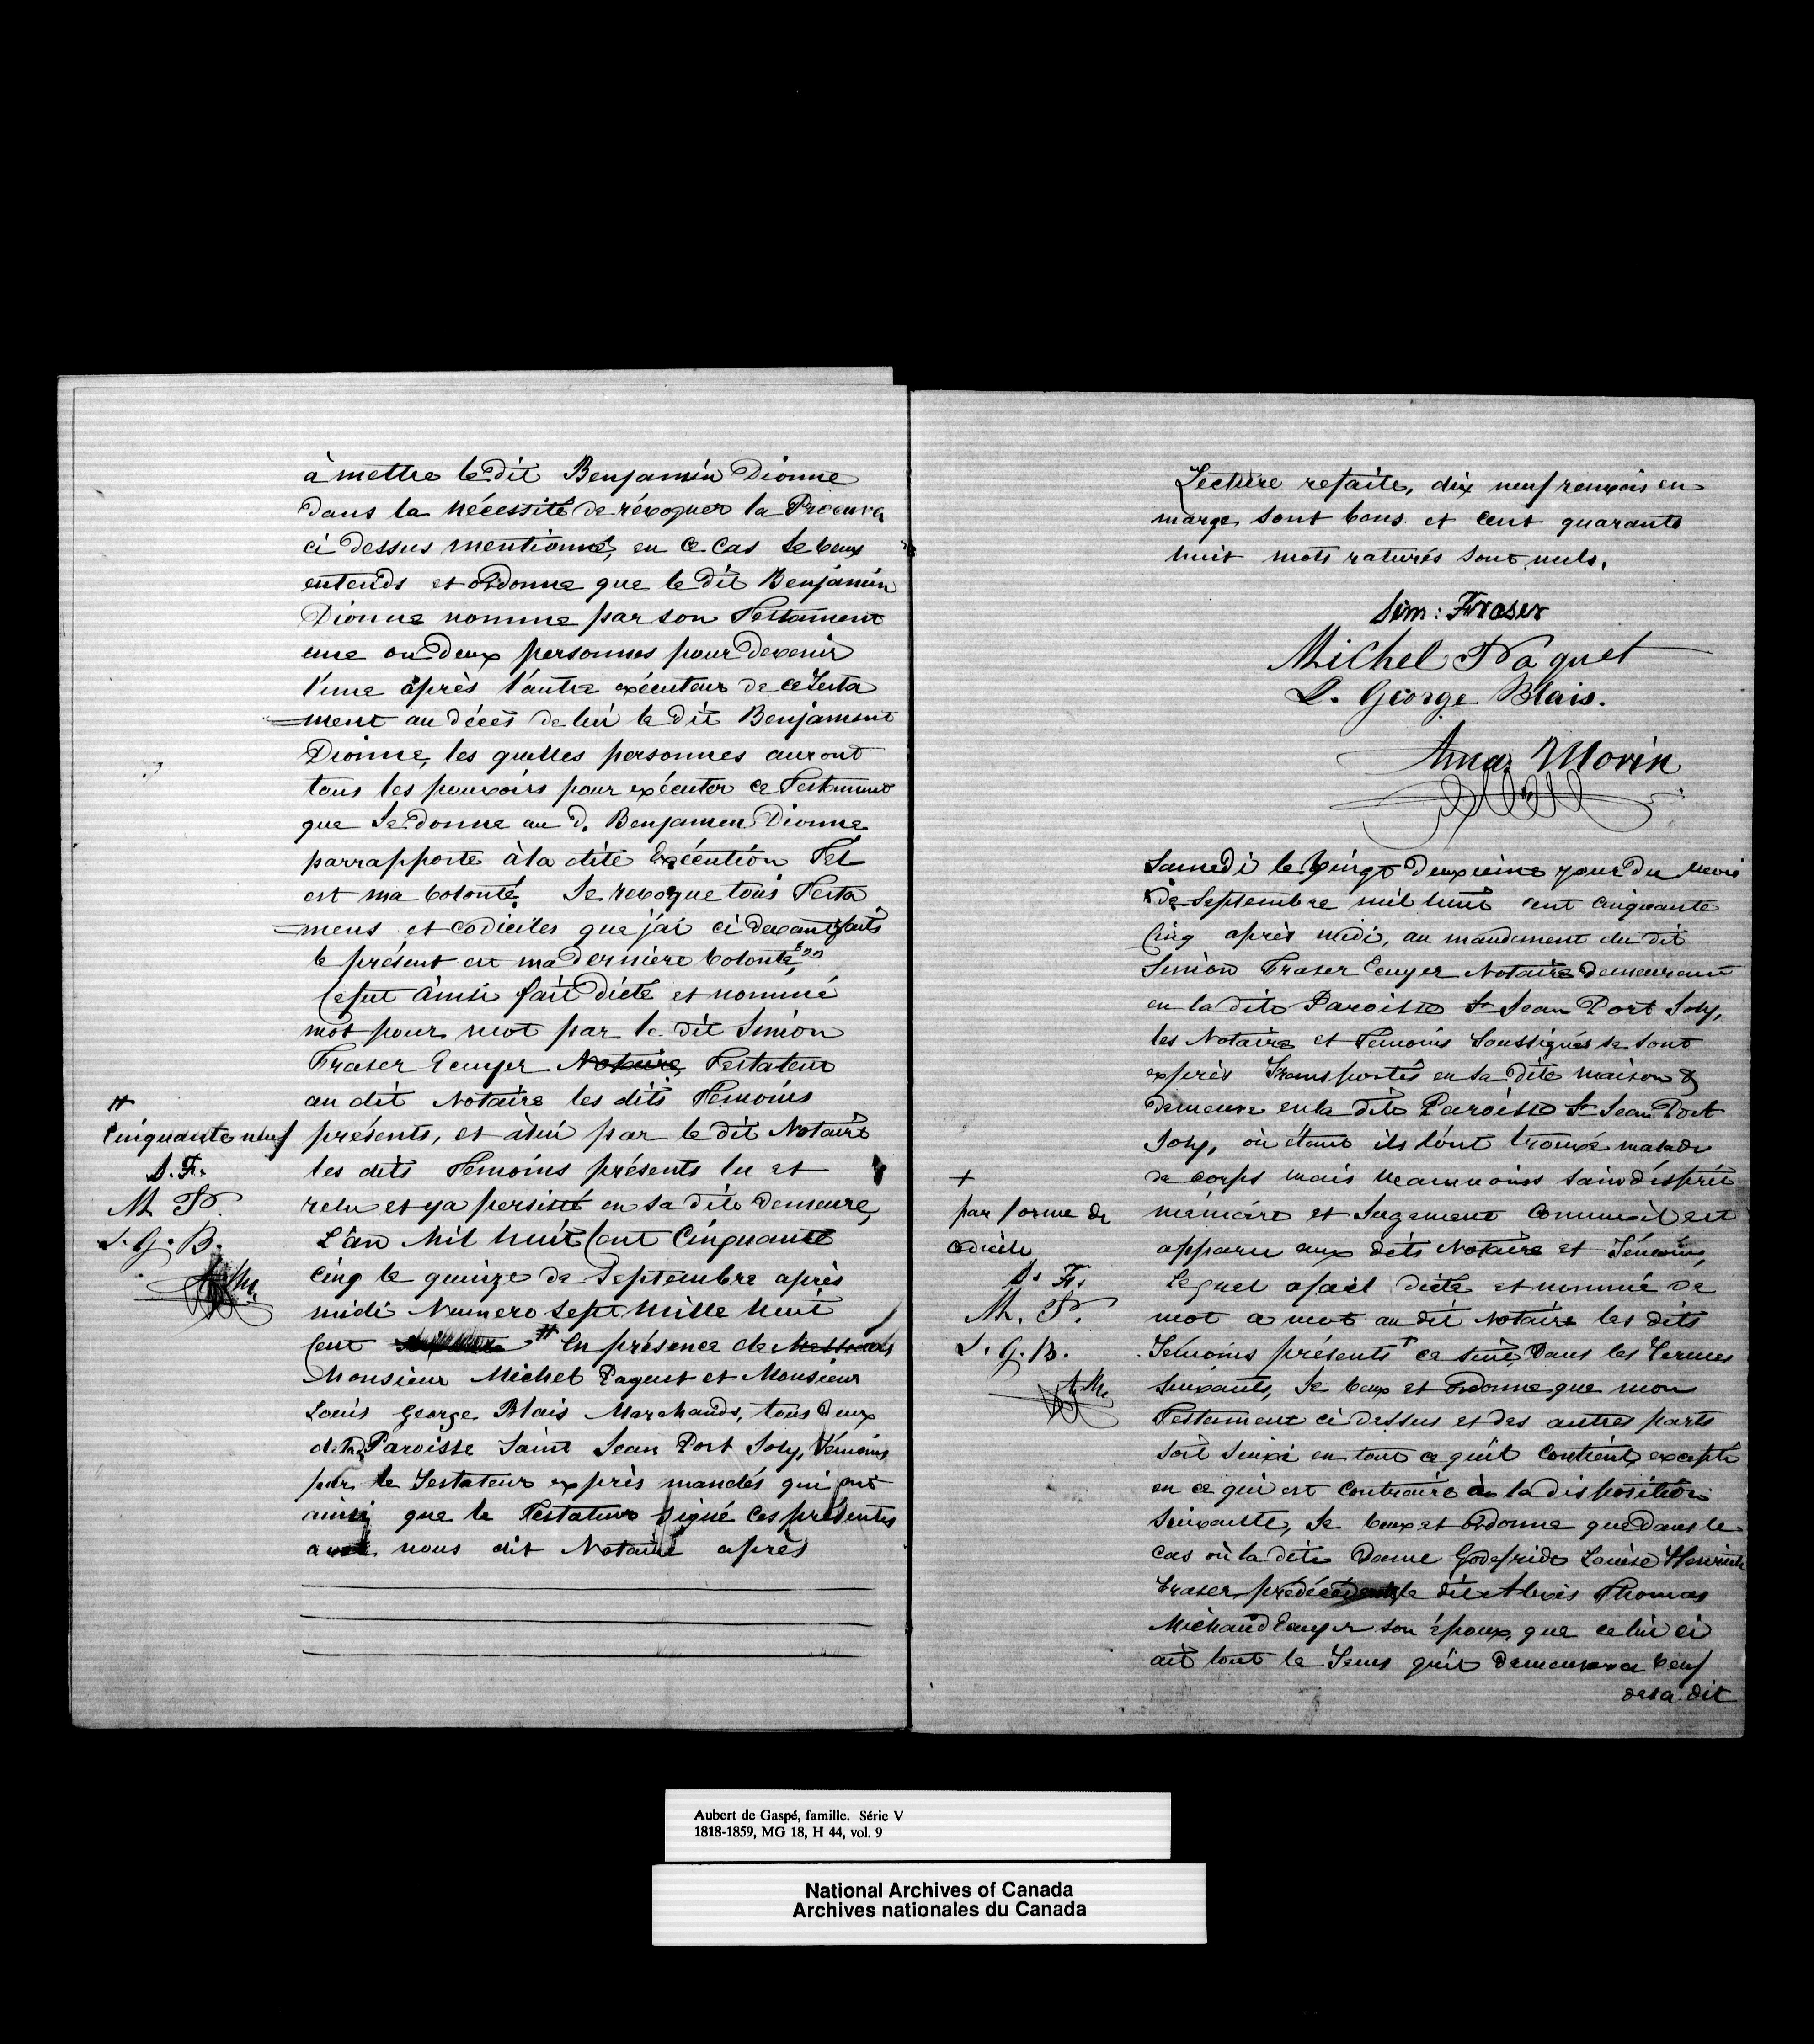 à mettre le dit Benjamin Dionne
dans la nécessité de révoquer la Procura
ci dessus mentionné, en ce cas Je veux
entends et ordonne que le dit Benjamin
Dionne nomme par son Testament
une ou deux personnes pour devenir
l'une après l'autre exécuteur de ce Testa
=ment au décès de lui le dit Benjamin
Dionne, les quelles personnes auront
tous les pouvoirs pour exécuter ce Testament
que Je donne au d. Benjamin Dionne
par rapporte à la dite Exécution Tel
est ma volonté. Je revoque tous Testa
=mens et codiciles que j'ai ci devant faits
le présent est ma dernière volonté
Ce fut ainsi fait dicté et nommé
mot pour mot par le dit Simon
Fraser Ecuyer Notaire Testateur
au dit Notaire les dits Temoins
présents, et à lui par le dit Notaire
les dits Temoins présents lu et
relu et y a persisté en sa dite demeure,
L'an Mil huit Cent Cinquante
cinq le quinze de Septembre après
midi Numero Sept Mille huit
Cent # En présence de Messieurs
Monsieur Michel Paquet et Monsieur
Louis George Blais Marchands, tous deux
de la Paroisse Saint Jean Port Joly, Témoins
par le Testateur exprès mandés qui ont
ainsi que le Testateur signé ces présentes
avec nous dit Notaire après
#
Cinquante neuf
S. Fr.
M. P.
L. G. B.
A. M.
Lecture refaite, dix neuf renvois en
marge sont bons et cent quarante
huit mots raturés sont nuls.
Sim: Fraser
Michel Paquet
L. George Blais.
Ama. Morin
Samedi le vingt deuxieme jour du Mois
de Septembre mil huit cent cinquante
Cinq après midi, au mandement du dit
Simon Fraser Ecuyer Notaire demeurant
en la dite Paroisse St Jean Port Joly,
les Notaire et Temoins Soussignés se sont
exprès Transportés en sa dite maison &
demeure en la dite Paroisse St Jean Port
Joly, où étant ils l'ont trouvé malade
de corps mais neanmoins sain d'esprit
mémoire et Jugement Comme il est
apparu aux dits Notaire et Témoins,
lequel a fait dicté et nommé de
mot a mot au dit Notaire les dits
Témoins présents + ce suit, Dans les Termes
Suivants, Je veux et ordonne que mon
Testament ci dessus et des autres parts
soit suivi en tout ce qu'il contient, excepté
en ce qui est contraire à la disposition
Suivante, Je veux et ordonne que Dans le
cas où la dite Dame Godefride Louise Henriette
Fraser, le dit Alexis Thomas
Michaud Ecuyer son époux, que celui ci
ait tout le Tems qu'il demeurera veuf
de sa dit
+
par forme de
codicile
S. Fr.
M. P.
L. G. B.
A. M.
Aubert de Gaspé, famille. Série V
1818-1859, MG 18, H 44, vol. 9
National Archives of Canada
Archives nationales du Canada